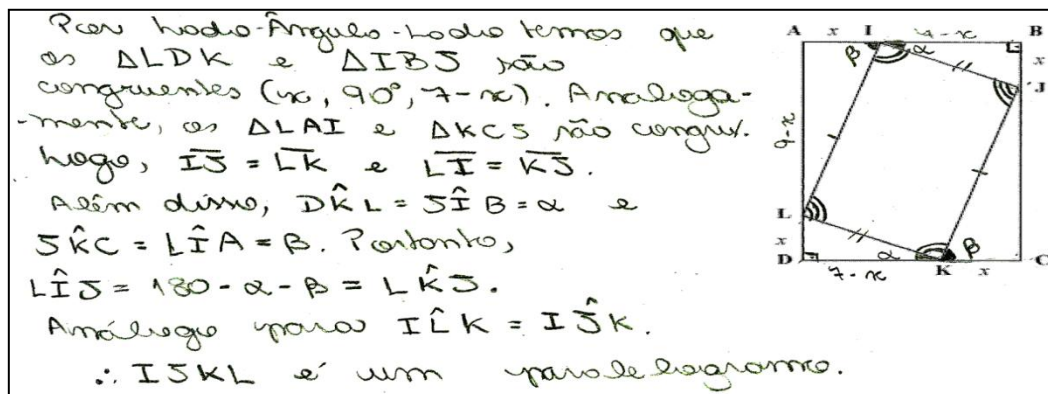 Por Lado-Ângulo-Lado temos que
os ΔLDK e ΔIBJ são
congruentes (x, 90°, 7-x). Analoga-
-mente, os ΔLAI e ΔKCJ são congru.
Logo, IJ = LK e LI = KJ.
Além disso, DK̂L = JÎB = α e
JK̂C = LÎA = β. Portanto,
LÎJ = 180 - α - β = LK̂J.
Análogo para IL̂K = IĴK.
∴ IJKL é um paralelogramo.
A I 7-x B
β α x
J
9-x
L
x α β
D 7-x K x C